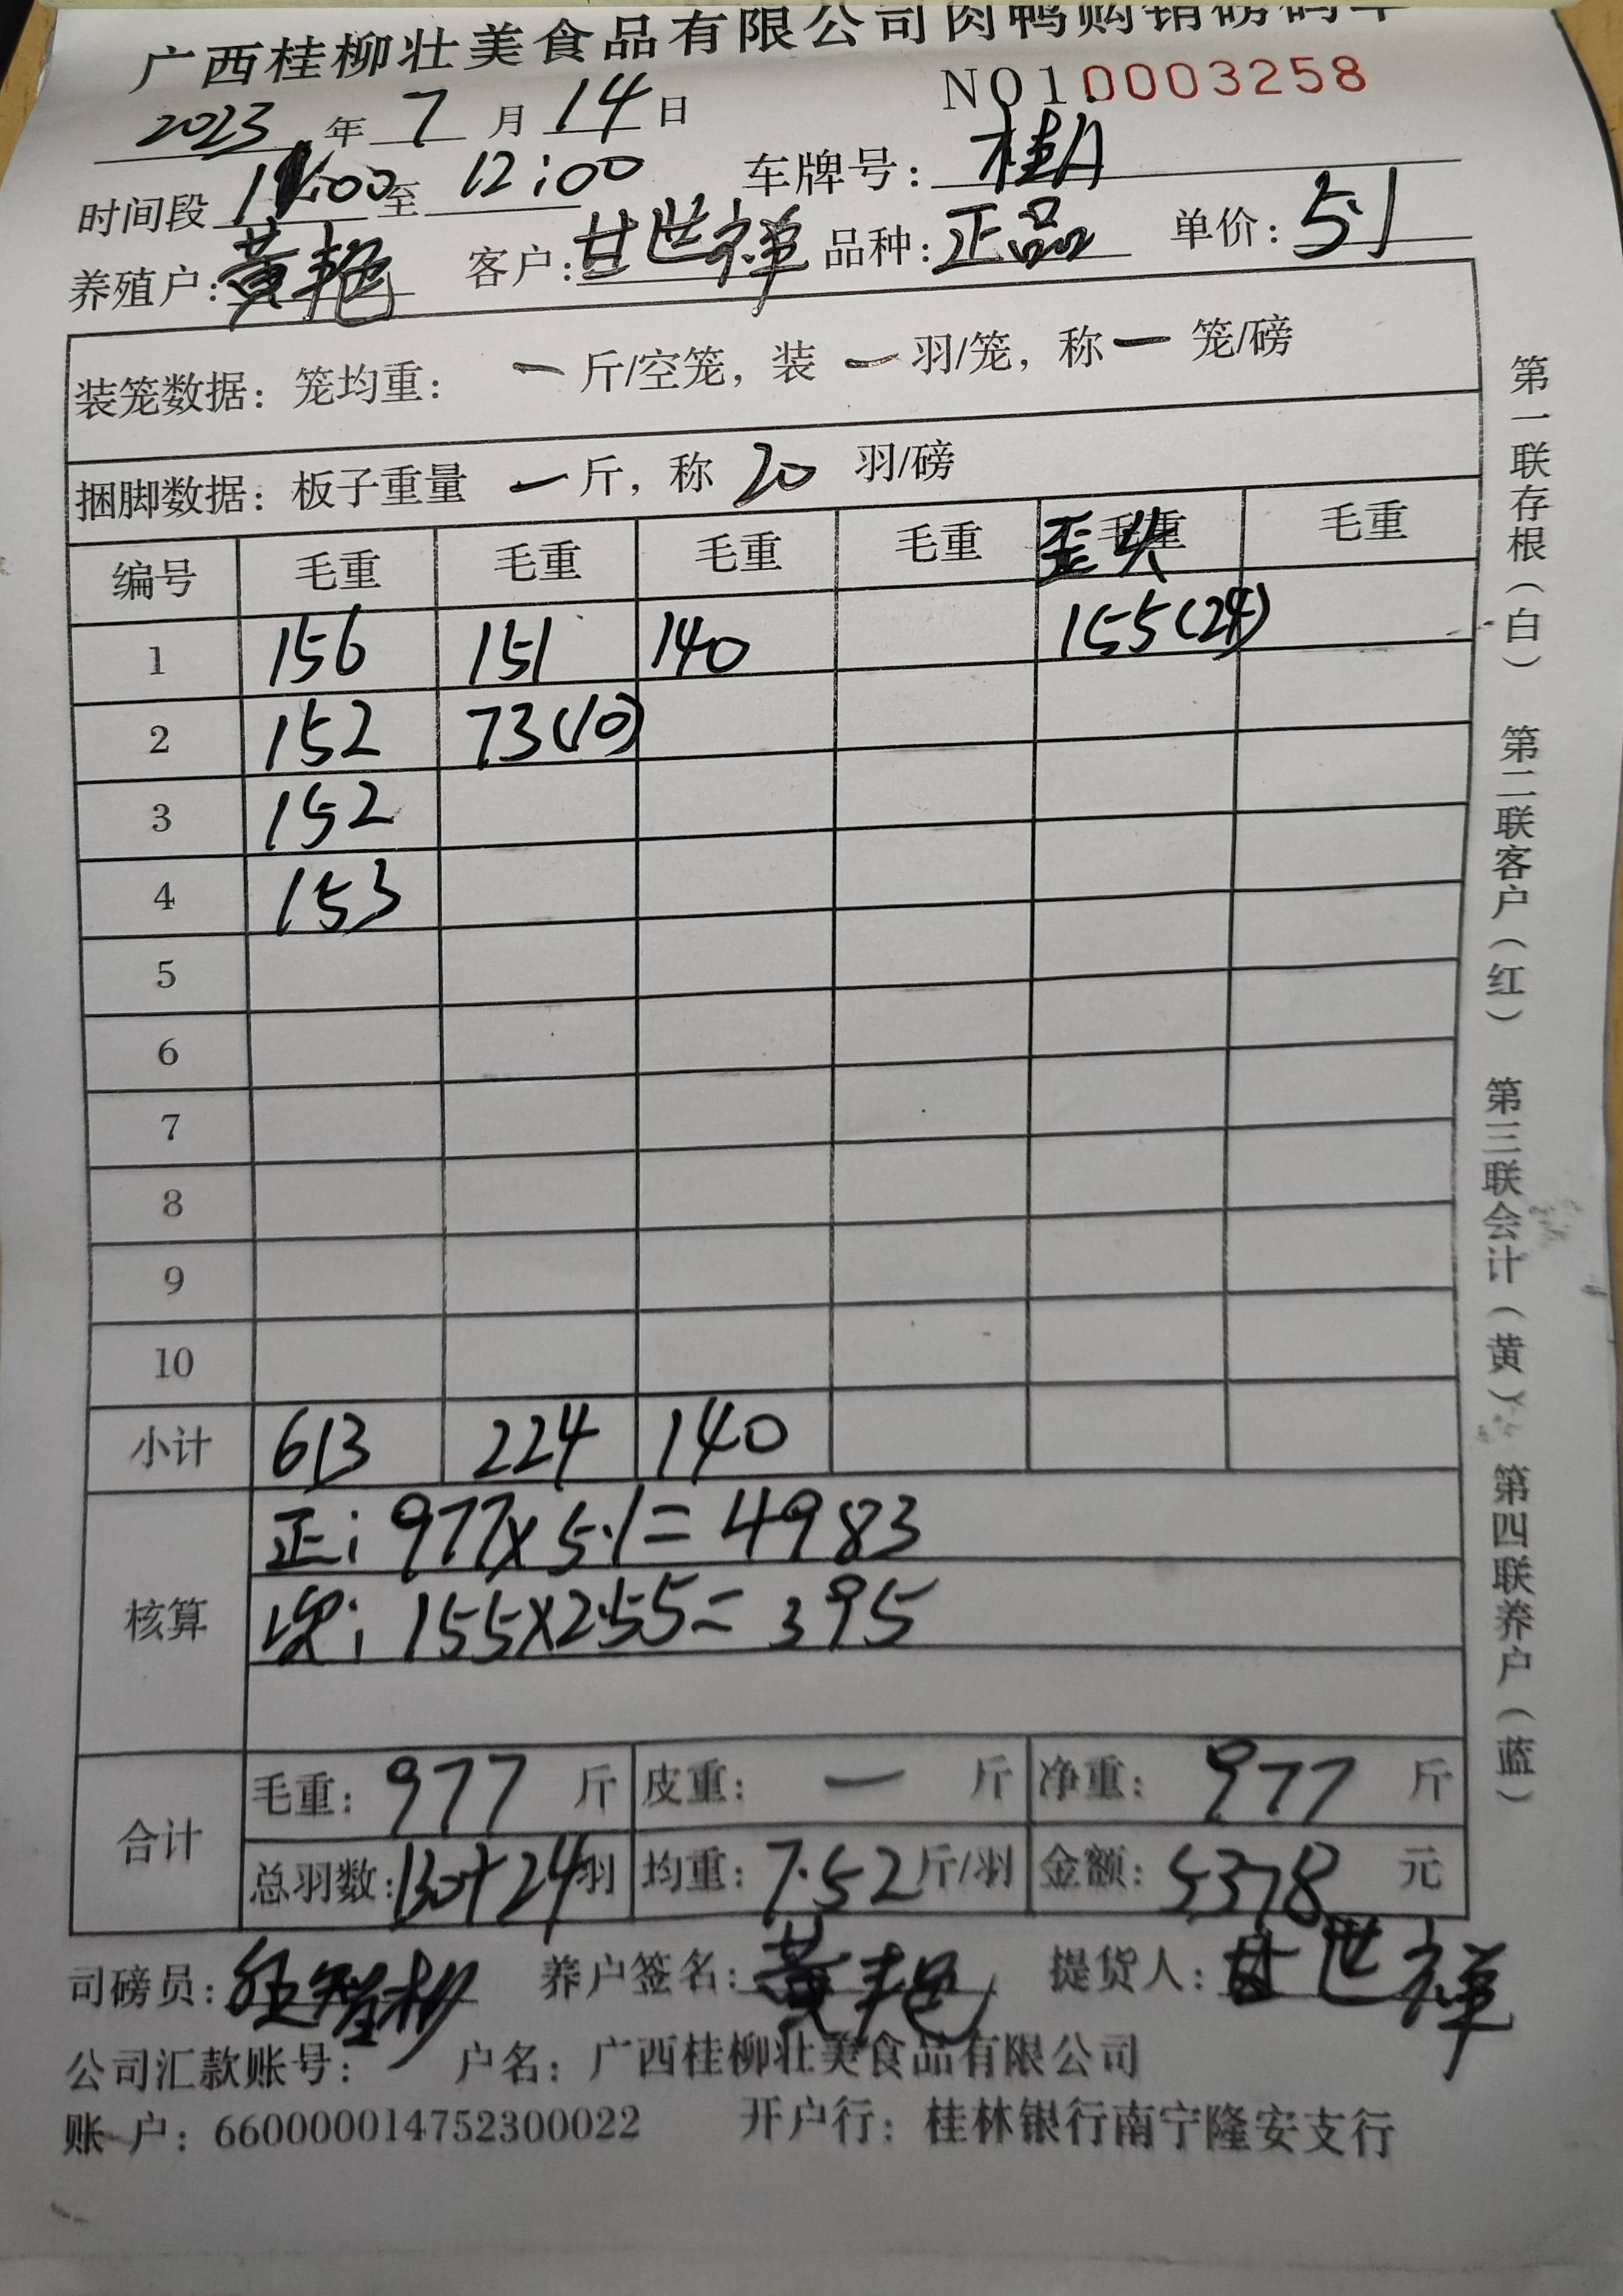 广西桂柳壮美食品有限公司肉鸭购销磅码单
2023 年 7 月 14 日 NO10003258
时间段 11:00 至 12:00 车牌号: 桂A
养殖户: 黄艳 客户: 甘世祥 品种: 正品 单价: 5.1
装笼数据: 笼均重: 一 斤/空笼, 装 一 羽/笼, 称 一 笼/磅
捆脚数据: 板子重量 一 斤, 称 20 羽/磅
编号 毛重 毛重 毛重 毛重 毛重 歪头 毛重
1 156 151 140 155(24)
2 152 73(10)
3 152
4 153
5
6
7
8
9
10
小计 613 224 140
核算
正: 977×5.1=4983
次: 155×2.55=395
合计
毛重: 977 斤 皮重: 一 斤 净重: 977 斤
总羽数: 130+24 羽 均重: 7.52 斤/羽 金额: 5378 元
司磅员: 养户签名: 黄艳 提货人: 甘世祥
公司汇款账号: 户名: 广西桂柳壮美食品有限公司
账 户: 660000014752300022 开户行: 桂林银行南宁隆安支行
第一联存根(白) 第二联客户(红) 第三联会计(黄) 第四联养户(蓝)